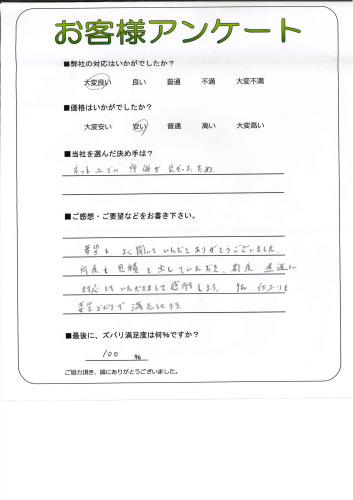 お客様アンケート
■弊社の対応はいかがでしたか？
大変良い 良い 普通 不満 大変不満
■価格はいかがでしたか？
大変安い 安い 普通 高い 大変高い
■当社を選んだ決め手は？
ネット上での 評価が 良かったため
■ご感想・ご要望などをお書き下さい。
要望も よく聞いていただき ありがとうございました。
何度も 見積を出していただき、都度 迅速に
対応していただきまして 感謝します。 仕上りも
要望どおりで 満足です。
■最後に、ズバリ満足度は何％ですか？
100 ％
ご協力頂き、誠にありがとうございました。